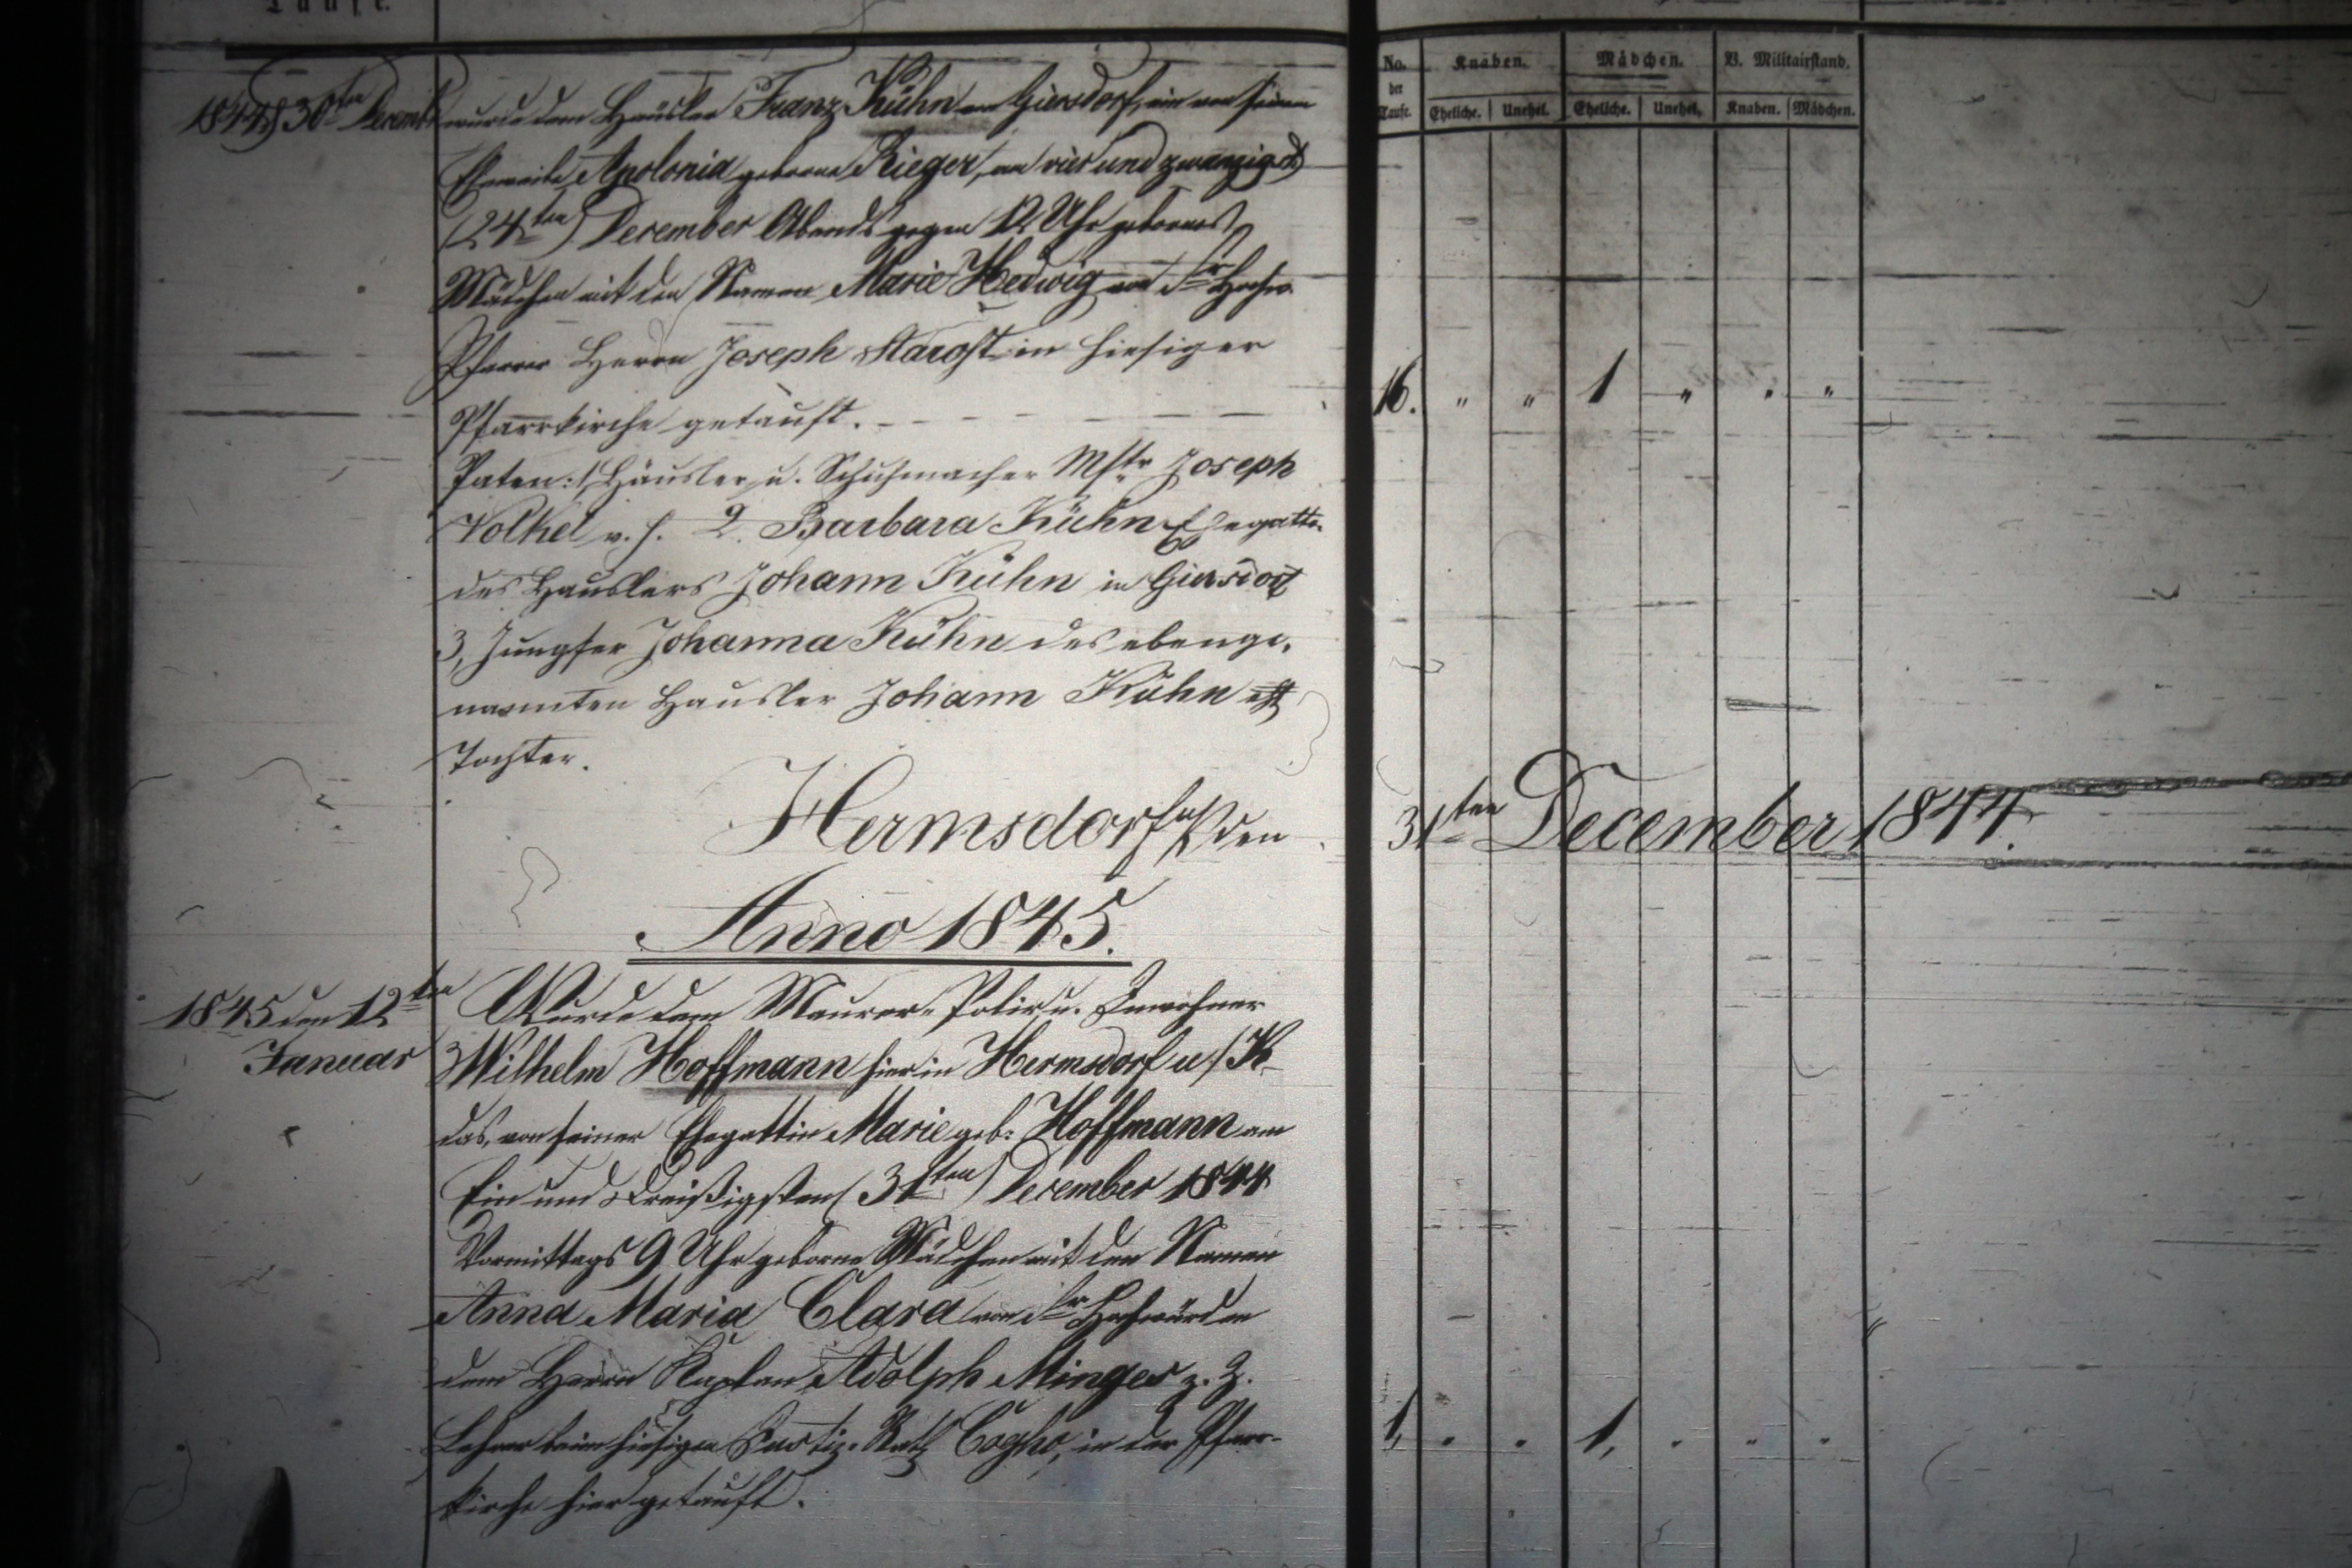 Taufe.
No. der Taufe. Knaben. Mädchen. B. Militairstand.
Eheliche. Unehel. Eheliche. Unehel. Knaben. Mädchen.
1844 d 30ten Decemb wurde dem Häusler Franz Kühn in Giersdorf, ein von seinem
Eheweibe Apolonia geborne Rieger, am vier und zwanzigst
(24ten) December Abends gegen 12 Uhr gebornes
Mädchen mit den Namen Marie Hedwig von Sr Hochw.
Pfarrer Herrn Joseph Starost in hiesiger
Pfarrkirche getauft. 16. " " 1 " " "
Paten: 1, Häusler u. Schuhmacher Mstr Joseph
Volkel v. h. 2. Barbara Kühn Ehegatte
des Hauslers Johann Kühn in Giersdorf
3, Jungfer Johanna Kühn des ebenge-
nannten Hausler Johann Kühn
Tochter.
Hermsdorf u/K den 31ten December 1844.
Anno 1845.
1845 den 12ten Januar
Wurde dem Maurer-Polir u. Inwohner
Wilhelm Hoffmann hier in Hermsdorf u/K
das, von seiner Ehegattin Marie geb: Hoffmann am
Ein und Dreißigsten (31ten) December 1844
Vormittags 9 Uhr geborne Mädchen mit den Namen
Anna Maria Clara von Sr Hochwürden
dem Herrn Kaplan Adolph Minger z. Z.
Lehrer beim hiesigen Justiz-Rath Cogho, in der Pfarr-
kirche hier getauft. 1, " " 1, " " "